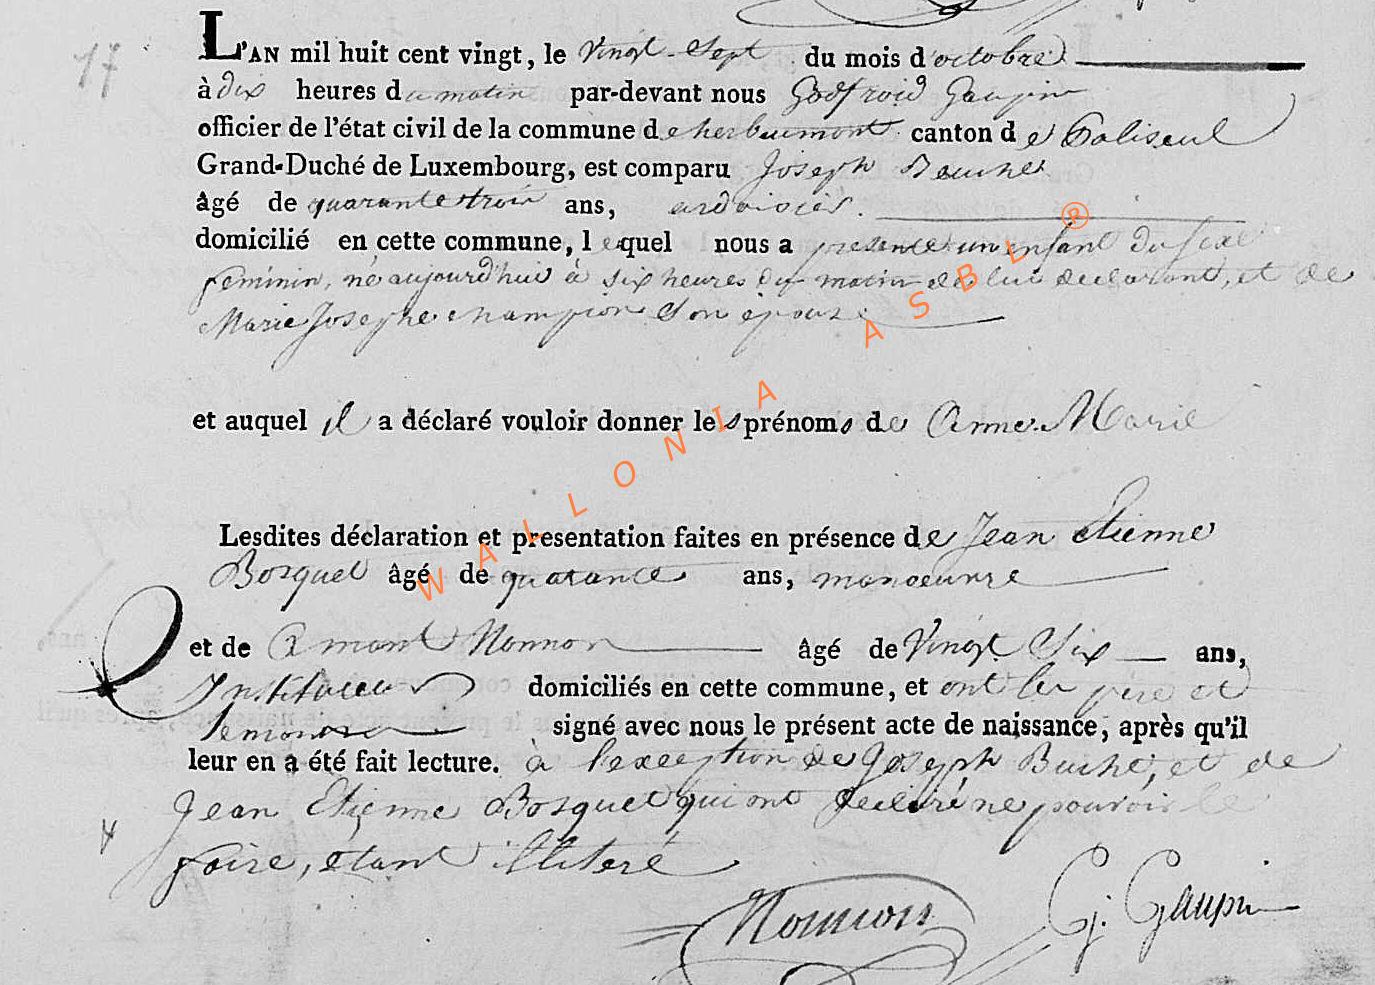 17
L'AN mil huit cent vingt, le Vingt-Sept du mois d'octobre
à dix heures du matin par-devant nous Godfroid Gaupin
officier de l'état civil de la commune de herbeumont canton de Paliseul
Grand-Duché de Luxembourg, est comparu Joseph Buche
âgé de quarante trois ans, ardoisier.
domicilié en cette commune, lequel nous a presenté un enfant du sexe
feminin, né aujourd'hui à six heures du matin de lui declarant, et de
Marie Josephe champion Son épouse.
et auquel il a déclaré vouloir donner les prénoms de Anne-Marie
Lesdites déclaration et presentation faites en présence de Jean Etienne
Bosquet âgé de quarante ans, manoeuvre
et de Amant Nonnon âgé de Vingt Six ans,
Instituteur domiciliés en cette commune, et ont les père et
temoins signé avec nous le présent acte de naissance, après qu'il
leur en a été fait lecture. à l'exception de Joseph Buché, et de
Jean Etienne Bosquet qui ont declaré ne pouvoir le
faire, etant illiteré
Nonnon G. Gaupin
WALLONIA ASBL ®